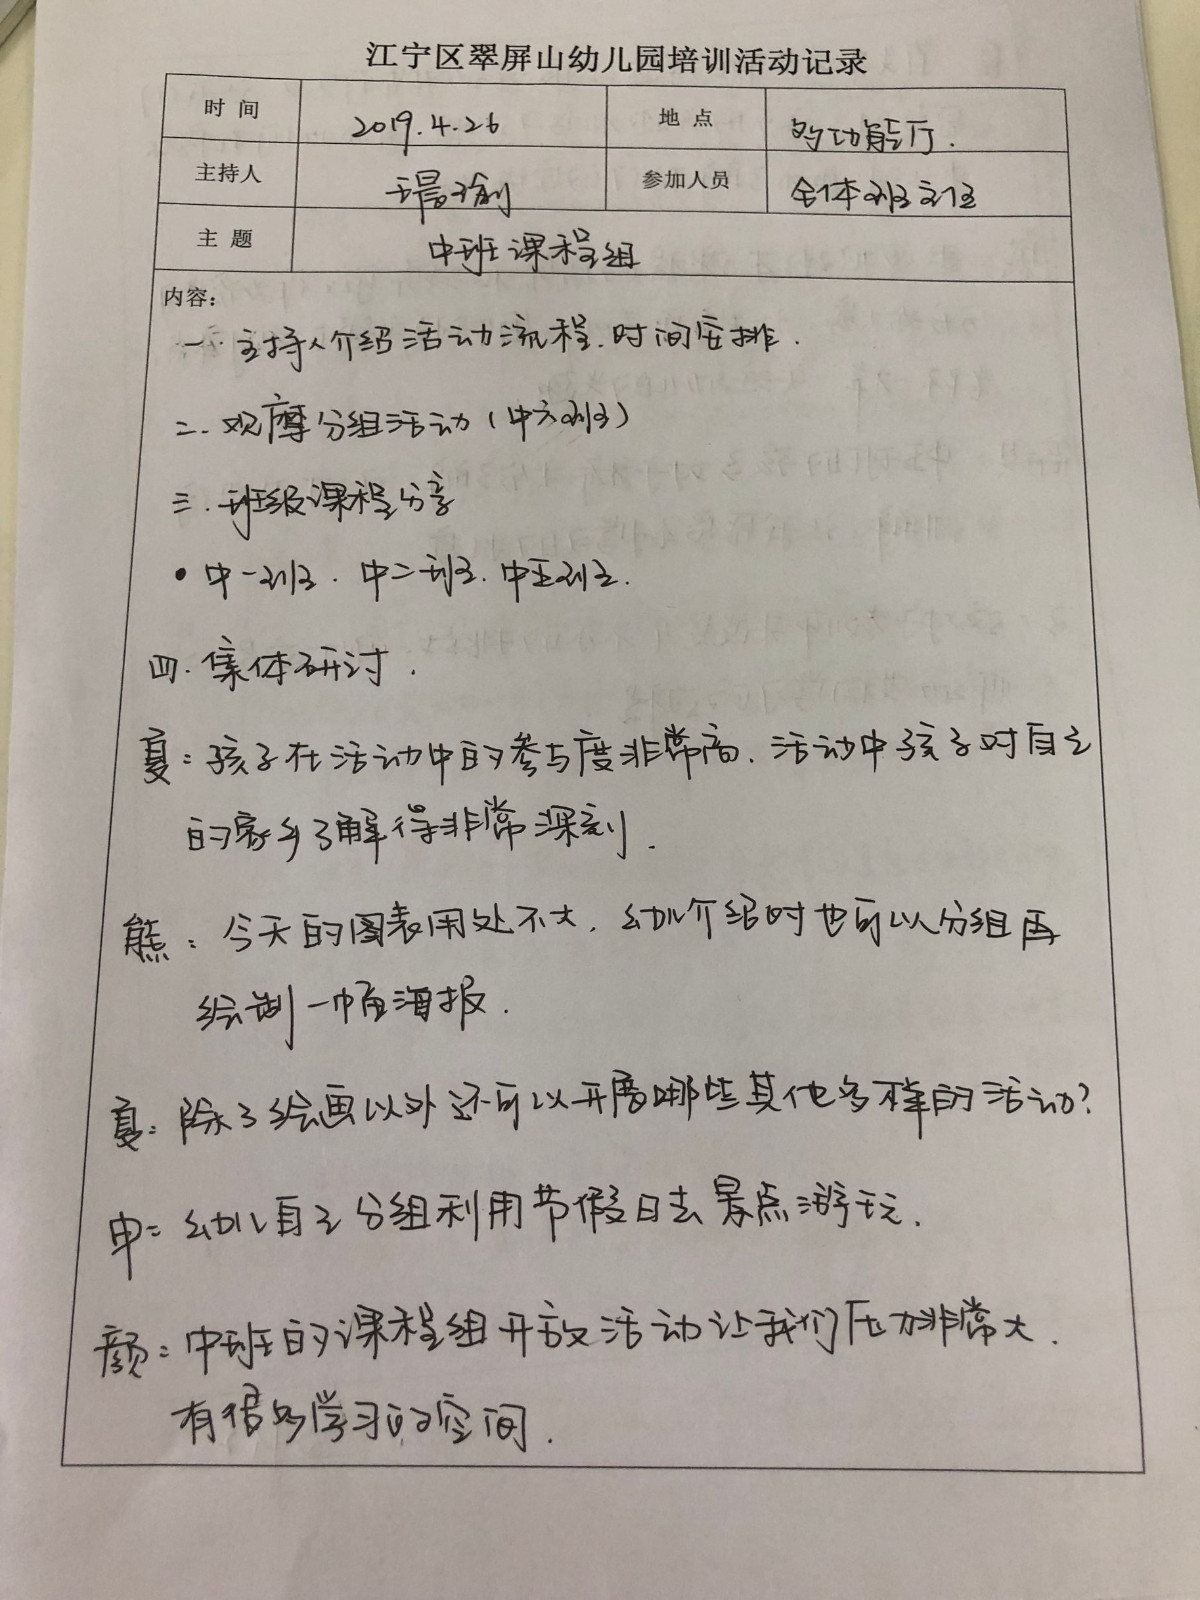 江宁区翠屏山幼儿园培训活动记录
时 间 2019.4.26 地 点 多功能厅.
主持人 参加人员 全体班主任
主 题 中班课程组
内容:
一. 主持人介绍活动流程.时间安排.
二. 观摩分组活动(中六班)
三. 班级课程分享
• 中一班. 中二班. 中五班.
四. 集体研讨.
夏: 孩子在活动中的参与度非常高. 活动中孩子对自己
的家乡了解得非常深刻.
熊: 今天的图表用处不大, 幼儿介绍时也可以分组再
绘制一幅海报.
夏: 除了绘画以外还可以开展哪些其他多样的活动?
申: 幼儿自主分组利用节假日去景点游玩.
颜: 中班的课程组开放活动让我们压力非常大.
有很多学习的空间.